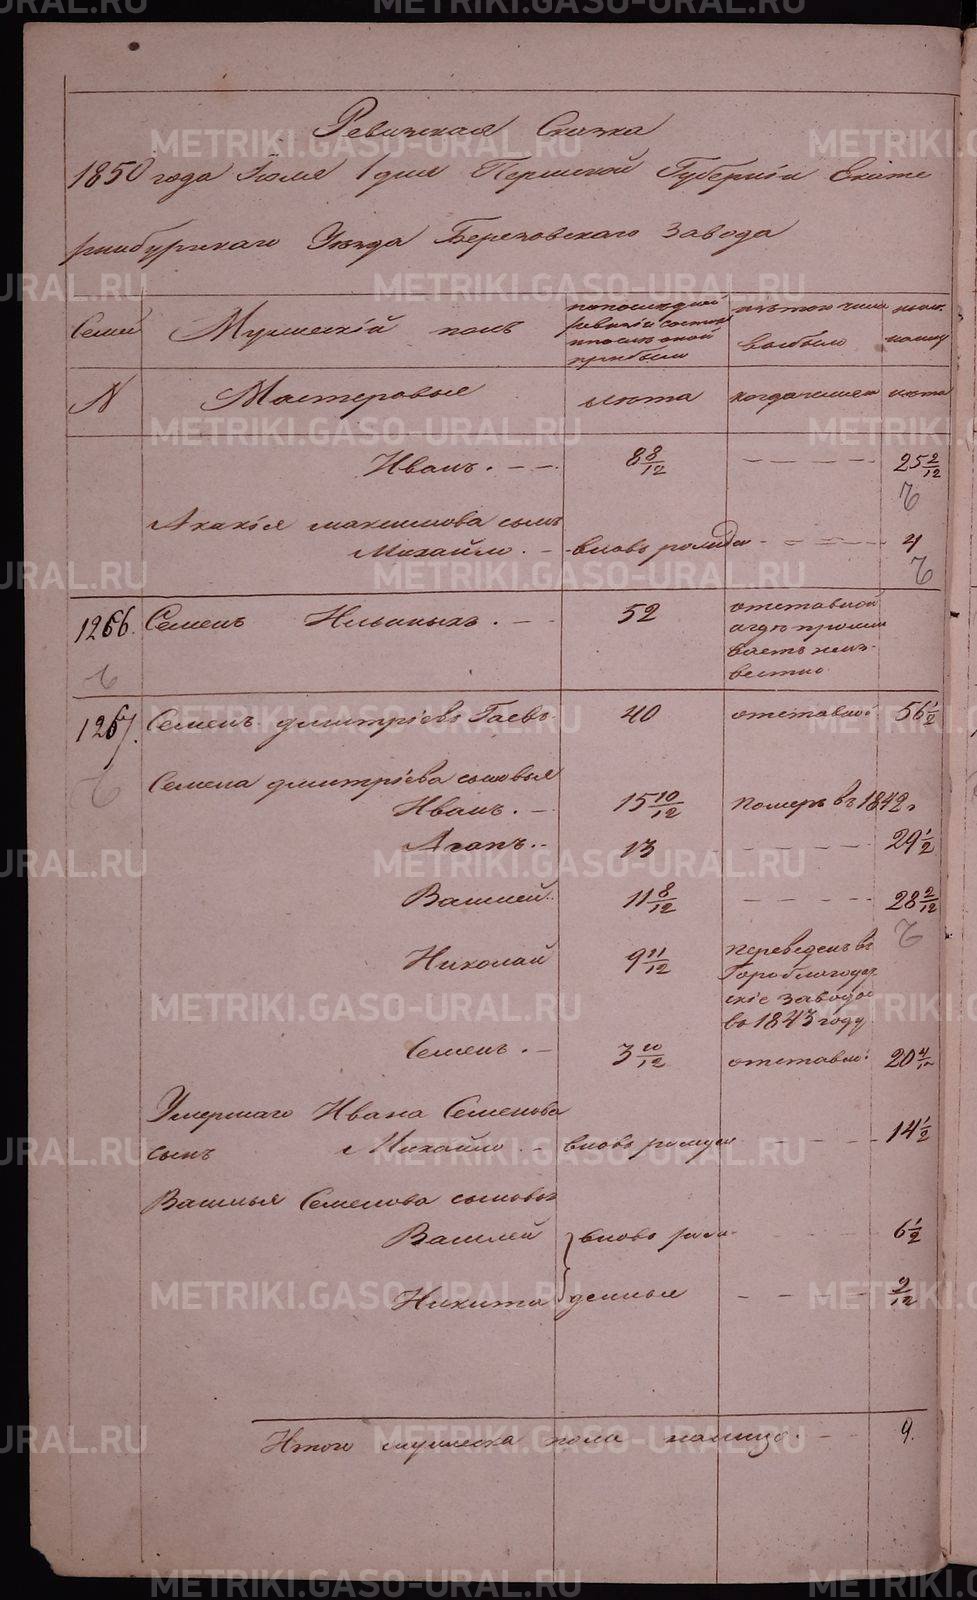 Ревизская Сказка
1850 года Іюля 1 дня Пермской Губерніи Екате
ринбургскаго Уезда Березовскаго Завода
Семей
Мужескій полъ
по последней
ревизіи состоя
ло и после оной
прибыло
изъ того числа
выбыло
ныне
на лицо
N
Мастеровые
лета
когда именно
лета
Иванъ . – – 8 8/12 – – – – – 25 2/12
Акакія Максимова сынъ
Михайло . – вновь рожден – – – – – 4
1266. Семенъ Ильиныхъ . – – 52
отставной
а где прожи
ваетъ неиз-
вестно
1267. Семенъ Дмитріевъ Гаевъ 40 отставной 56 1/2
Семена Дмитріева сыновья
Иванъ . – 15 10/12 померъ въ 1842.
Агапъ . – 13 – – – – – 29 1/2
Василей 11 8/12 – – – – – 28 2/12
Николай 9 11/12
переведенъ въ
Гороблагодат
скіе заводы
въ 1843 году
Семенъ . – 3 10/12 отставн: 20 4/12
Умершаго Ивана Семенова
сынъ Михайло – вновь рожден – – – – 14 1/2
Василья Семенова сыновья
Василей } вновь рож- 6 1/2
Никита денные – – – – 9/12
Итого мужеска пола налицо. – – 9.
METRIKI.GASO-URAL.RU